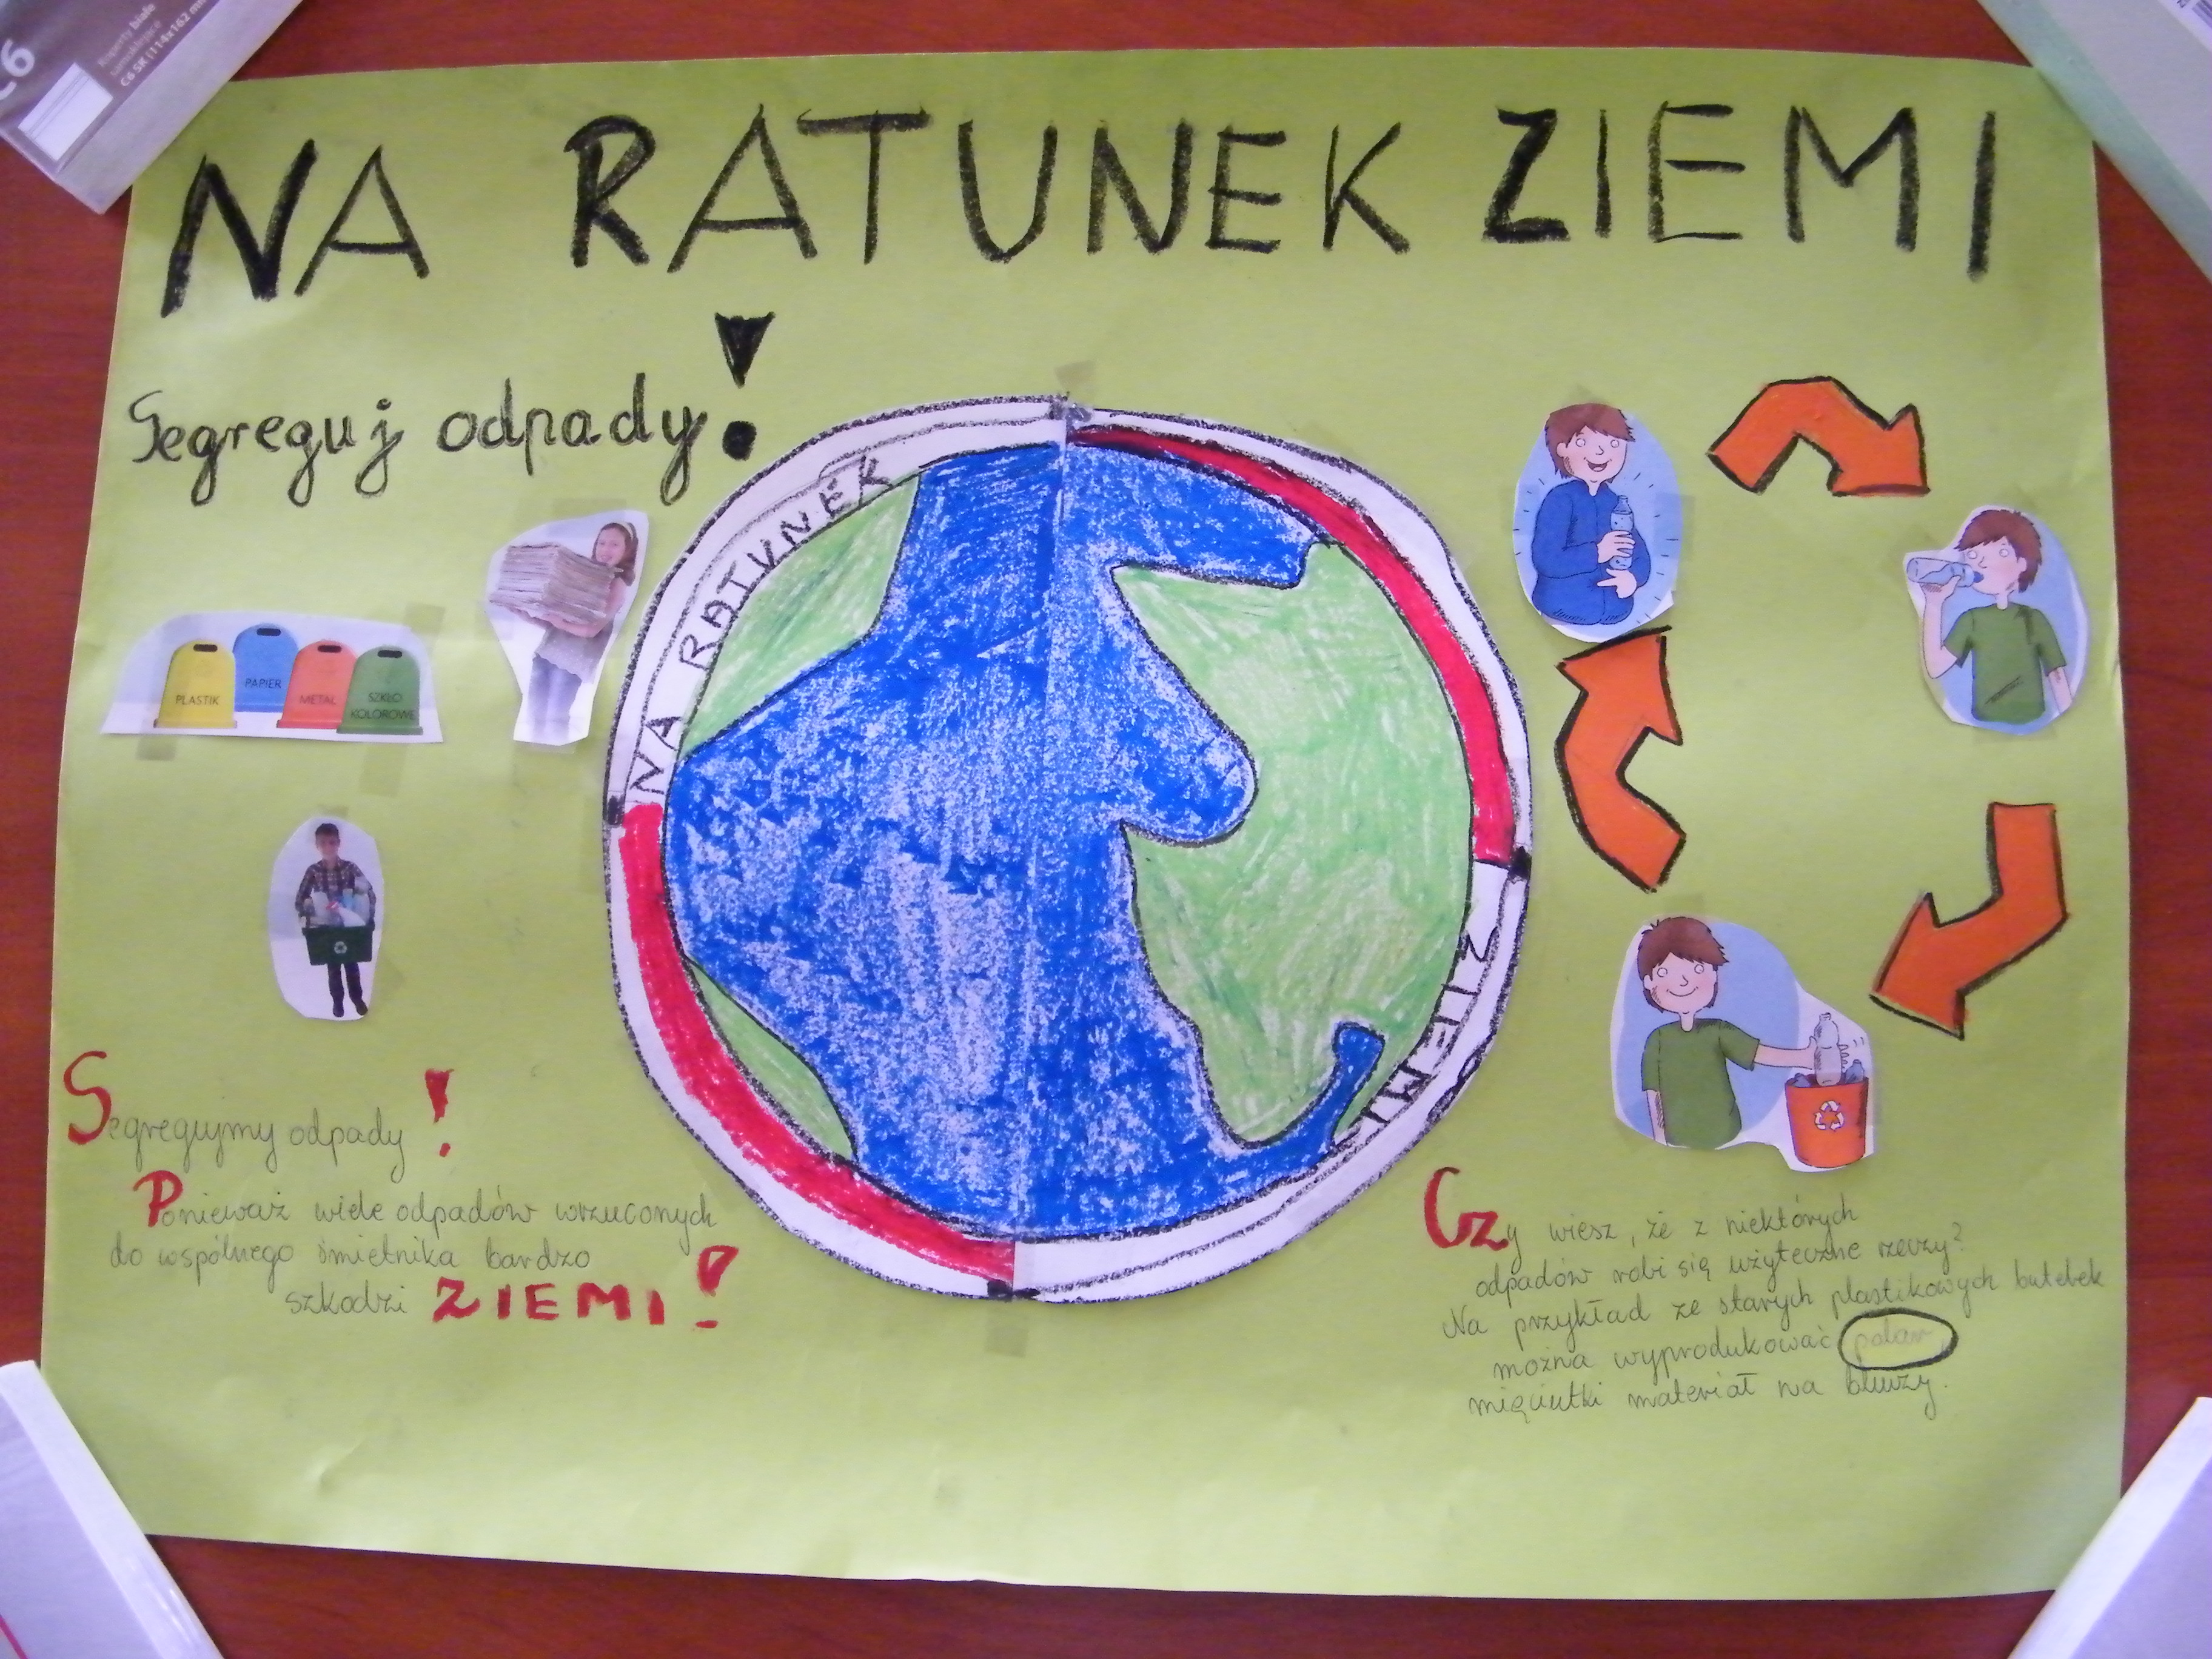 C6
Koperty białe
samoklejące
C6 SK (114x162 mm
NA RATUNEK ZIEMI
Segreguj odpady!
NA RATUNEK
ZIEMI
PLASTIK
PAPIER
METAL
SZKŁO
KOLOROWE
Segregujmy odpady!
Ponieważ wiele odpadów wrzuconych
do wspólnego śmietnika bardzo
szkodzi ZIEMI!
Czy wiesz, że z niektórych
odpadów robi się użyteczne rzeczy?
Na przykład ze starych plastikowych butelek
można wyprodukować polar,
mięciutki materiał na bluzy.